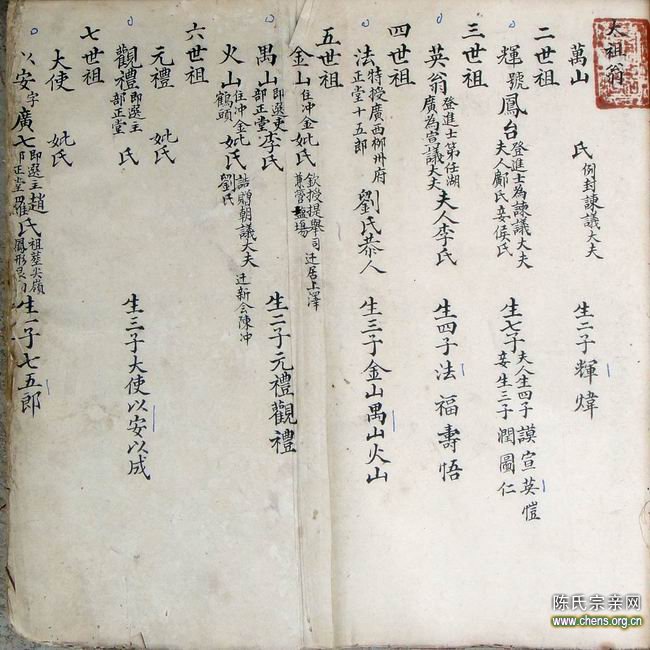 太祖翁
萬山 氏 例封諫議大夫 生二子輝煒
二世祖
輝號鳳台 登進士為諫議大夫 夫人鄺氏妾侯氏 生七子 夫人生四子謨宣英愷 妾生三子潤圖仁
三世祖
英翁 登進士第任湖廣為宣議大夫 夫人李氏 生四子法福壽悟
四世祖
法 特授廣西柳州府正堂十五郎 劉氏恭人 生三子金山禺山火山
五世祖
金山 住冲金 妣氏 欽授提舉司 迁居上澤 兼管塲
禺山 即選吏部正堂 李氏 生二子元禮觀禮
火山 住冲金鶴頭 妣氏 劉氏 誥贈朝議大夫 迁新会陳冲
六世祖
元禮 妣氏
觀禮 即選主部正堂 氏 生三子大使以安以成
七世祖
大使 妣氏
以安 字廣七 即選主部正堂 趙氏羅氏 祖塋尖嶺鳳形 生一子七五郎
陈氏宗亲网
www.chens.org.cn